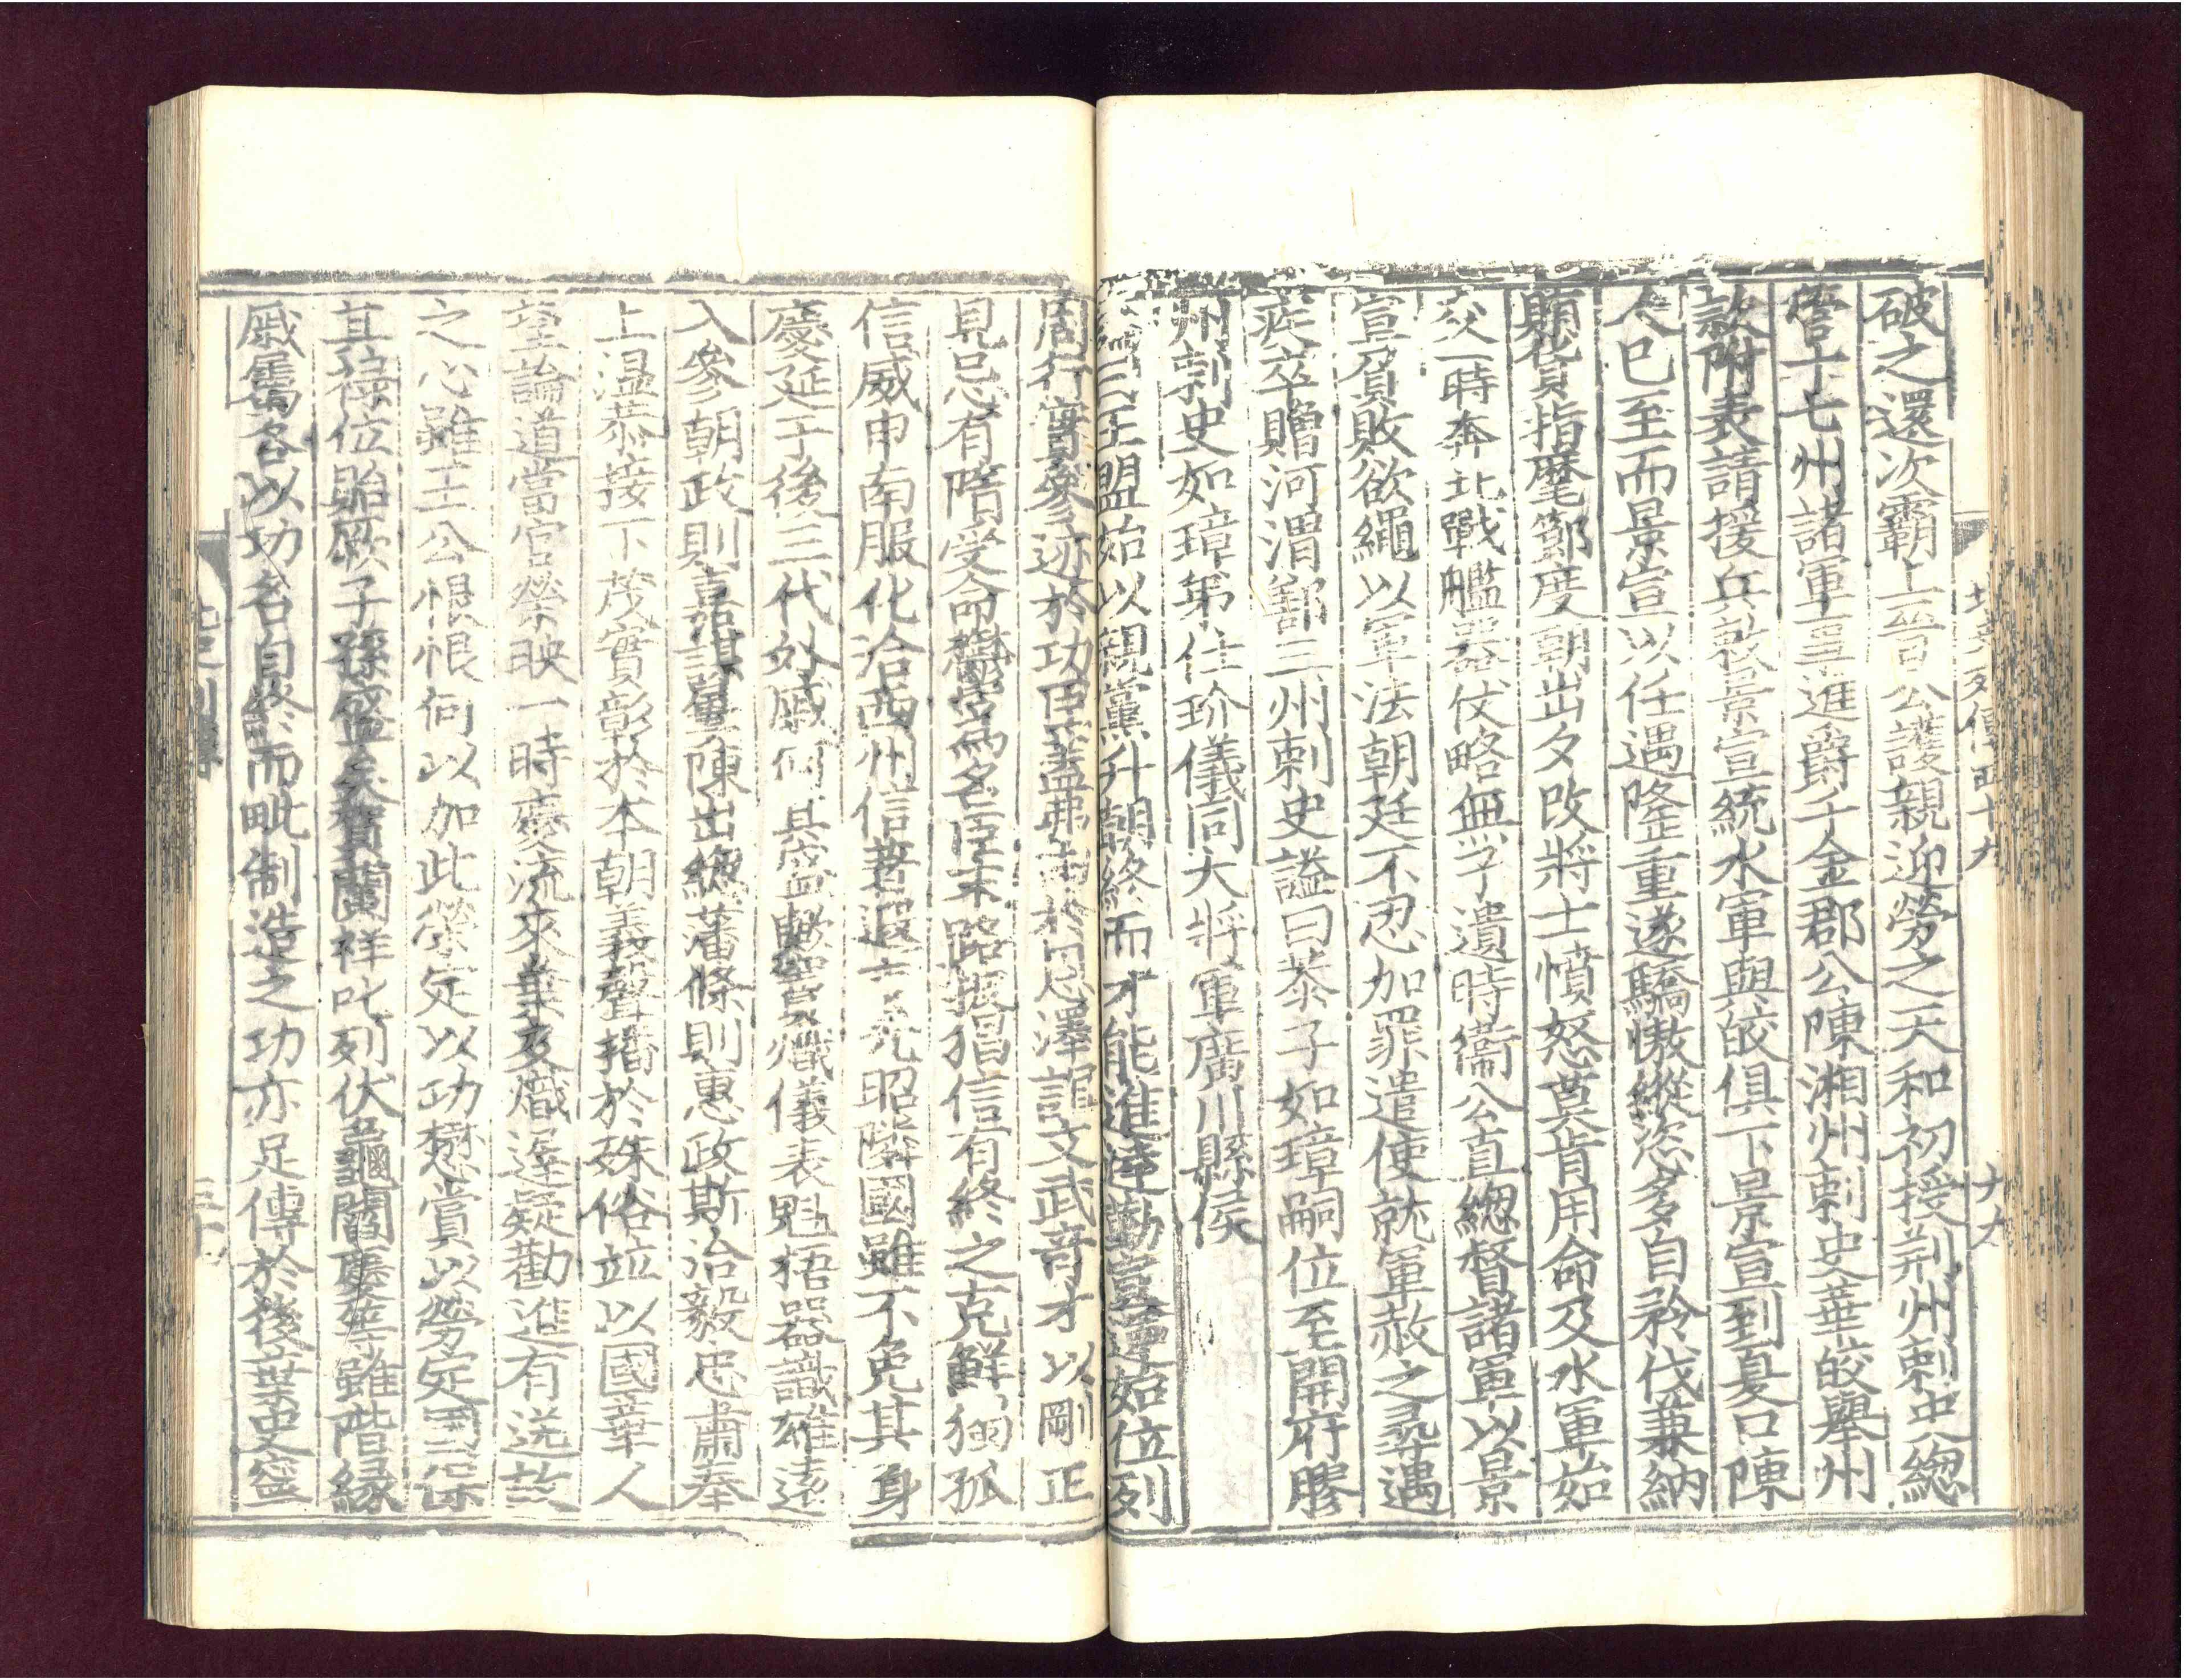 破之還次霸上晉公護親迎勞之天和初授荊州刺史總
管十七州諸軍事進爵千金郡公陳湘州刺史華皎舉州
款附表請援兵敕景宣統水軍與皎俱下景宣到夏口陳
人已至而景宣以任遇隆重遂驕慠縱恣多自矜伐兼納
賄貨指麾節度朝出夕改將士憤怒莫肯用命及水軍始
交一時奔北戰艦器仗略無孑遺時衛公直總督諸軍以景
宣負敗欲繩以軍法朝廷不忍加罪遣使就軍赦之尋遇
疾卒贈河渭鄯三州刺史謚曰恭子如璋嗣位至開府膠
州刺史如璋弟仕玠儀同大將軍廣川縣侯
論曰王盟始以親黨升朝終而才能進達勤宣運始位列
周行實參迹於功臣蓋弗由於恩澤誼文武奇才以剛正
見忌有隋受命鬱為名臣末路披猖信有終之克鮮獨孤
信威申南服化洽西州信著遐方光昭隣國雖不免其身
慶延于後三代外戚何其盛歟竇熾儀表魁梧器識雄遠
入參朝政則嘉謀屢陳出總藩條則惠政斯洽毅忠肅奉
上溫恭接下茂實彰於本朝義聲播於殊俗並以國華人
望論道當官榮映一時慶流來葉及熾遲疑勸進有送故
之心雖王公恨恨何以加此榮定以功懋賞以勞定國保
其祿位貽厥子孫盛矣賀蘭祥叱列伏龜閻慶等雖階緣
戚屬各以功名自終而毗制造之功亦足傳於後葉史寧
北史列傳四十九
十九
北史列傳
二十